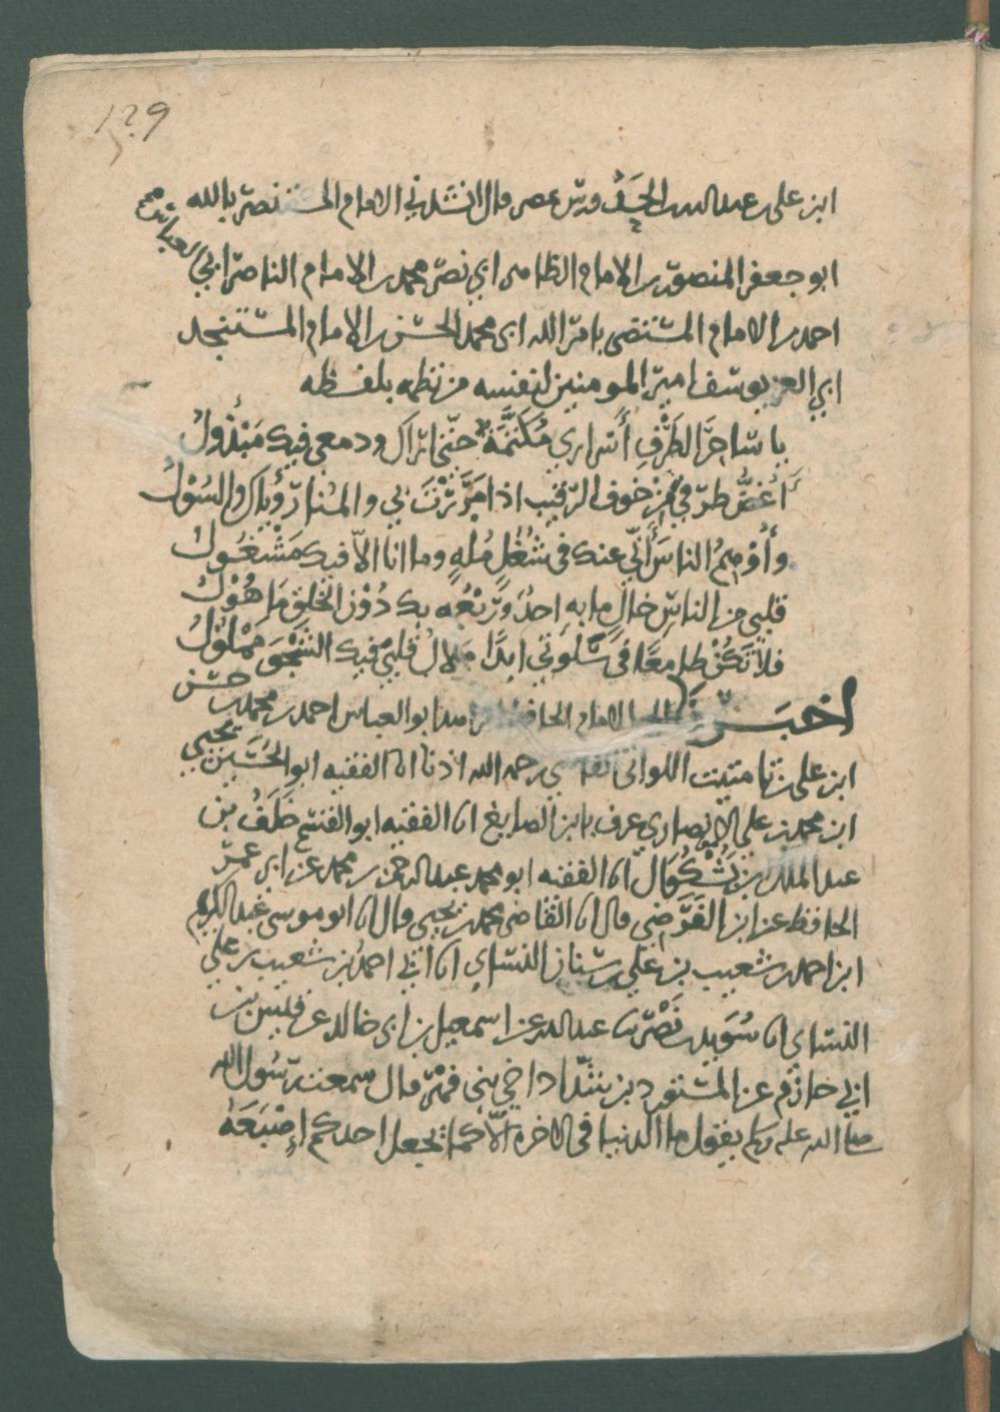 129
ابن علي بن عبد الله المجد قدس بمصر قال انشدني الامام المستنصر بالله
ابو جعفر المنصور بن الامام الظاهر ابي نصر محمد بن الامام الناصر ابي العباس
احمد بن الامام المستضي بامر الله ابي محمد الحسن بن الامام المستنجد
ابي يوسف امير المومنين لنفسه من نظمه بلفظه
يا ساحر الطَرْفِ أَسراري مُكتمَّة حتّى اراك ودمعي فيك مَبْذُولُ
أَغُضُّ طرفي من خوف الرقيب اذا مَرَرْتَ بي والمُنا رُؤْياك والسُوْلُ
وأُوْهِمُ الناسَ أَنّي عنك في شُغُلٍ مُلْهٍ وما انا الاّ فيك مَشْغُولُ
قلبي من الناسِ خالٍ ما به احدٌ ورَبْعُه بك دُوْن الخلق مَاهُوْلُ
فلا تكنْ طامعًا في سَلْوَتي ابدًا قلبي فيك الشجْو مملوْلُ
اخبرنا الامام الحافظ ابو العباس احمد بن محمد بن حسن
ابن علي بن تامتيت اللواتي رحمه الله اذنا انا الفقيه ابو الحُسَين يحيى
ابن محمد بن علي الانصاري عرف بابن الصايغ انا الفقيه ابو الفتح خَلَفُ بن
عبد الملك بن بَشْكُوَال انا الفقيه ابو محمد عبد الرحمن بن محمد عن ابي عمر
الحافظ عن ابن الفَرَضي قال انا القاضي محمد بن يحيى قال انا ابو موسى عبد الكريم
ابن احمد بن شعيب بن علي بن سنان النساي انا ابي احمد بن شعيب بن علي
النساي انا سُوَيد بن نَصْر نا عبد الله عن اسمعيل بن ابي خالد عن قيس بن
ابي حازم عن المستورد بن شدّاد اخي بني فهر قال سمعت رسُول الله
صلى الله عليه وسلم يقول ما الدنيا في الاخرة الاّ كما يجعل احدكم اصْبَعَهُ